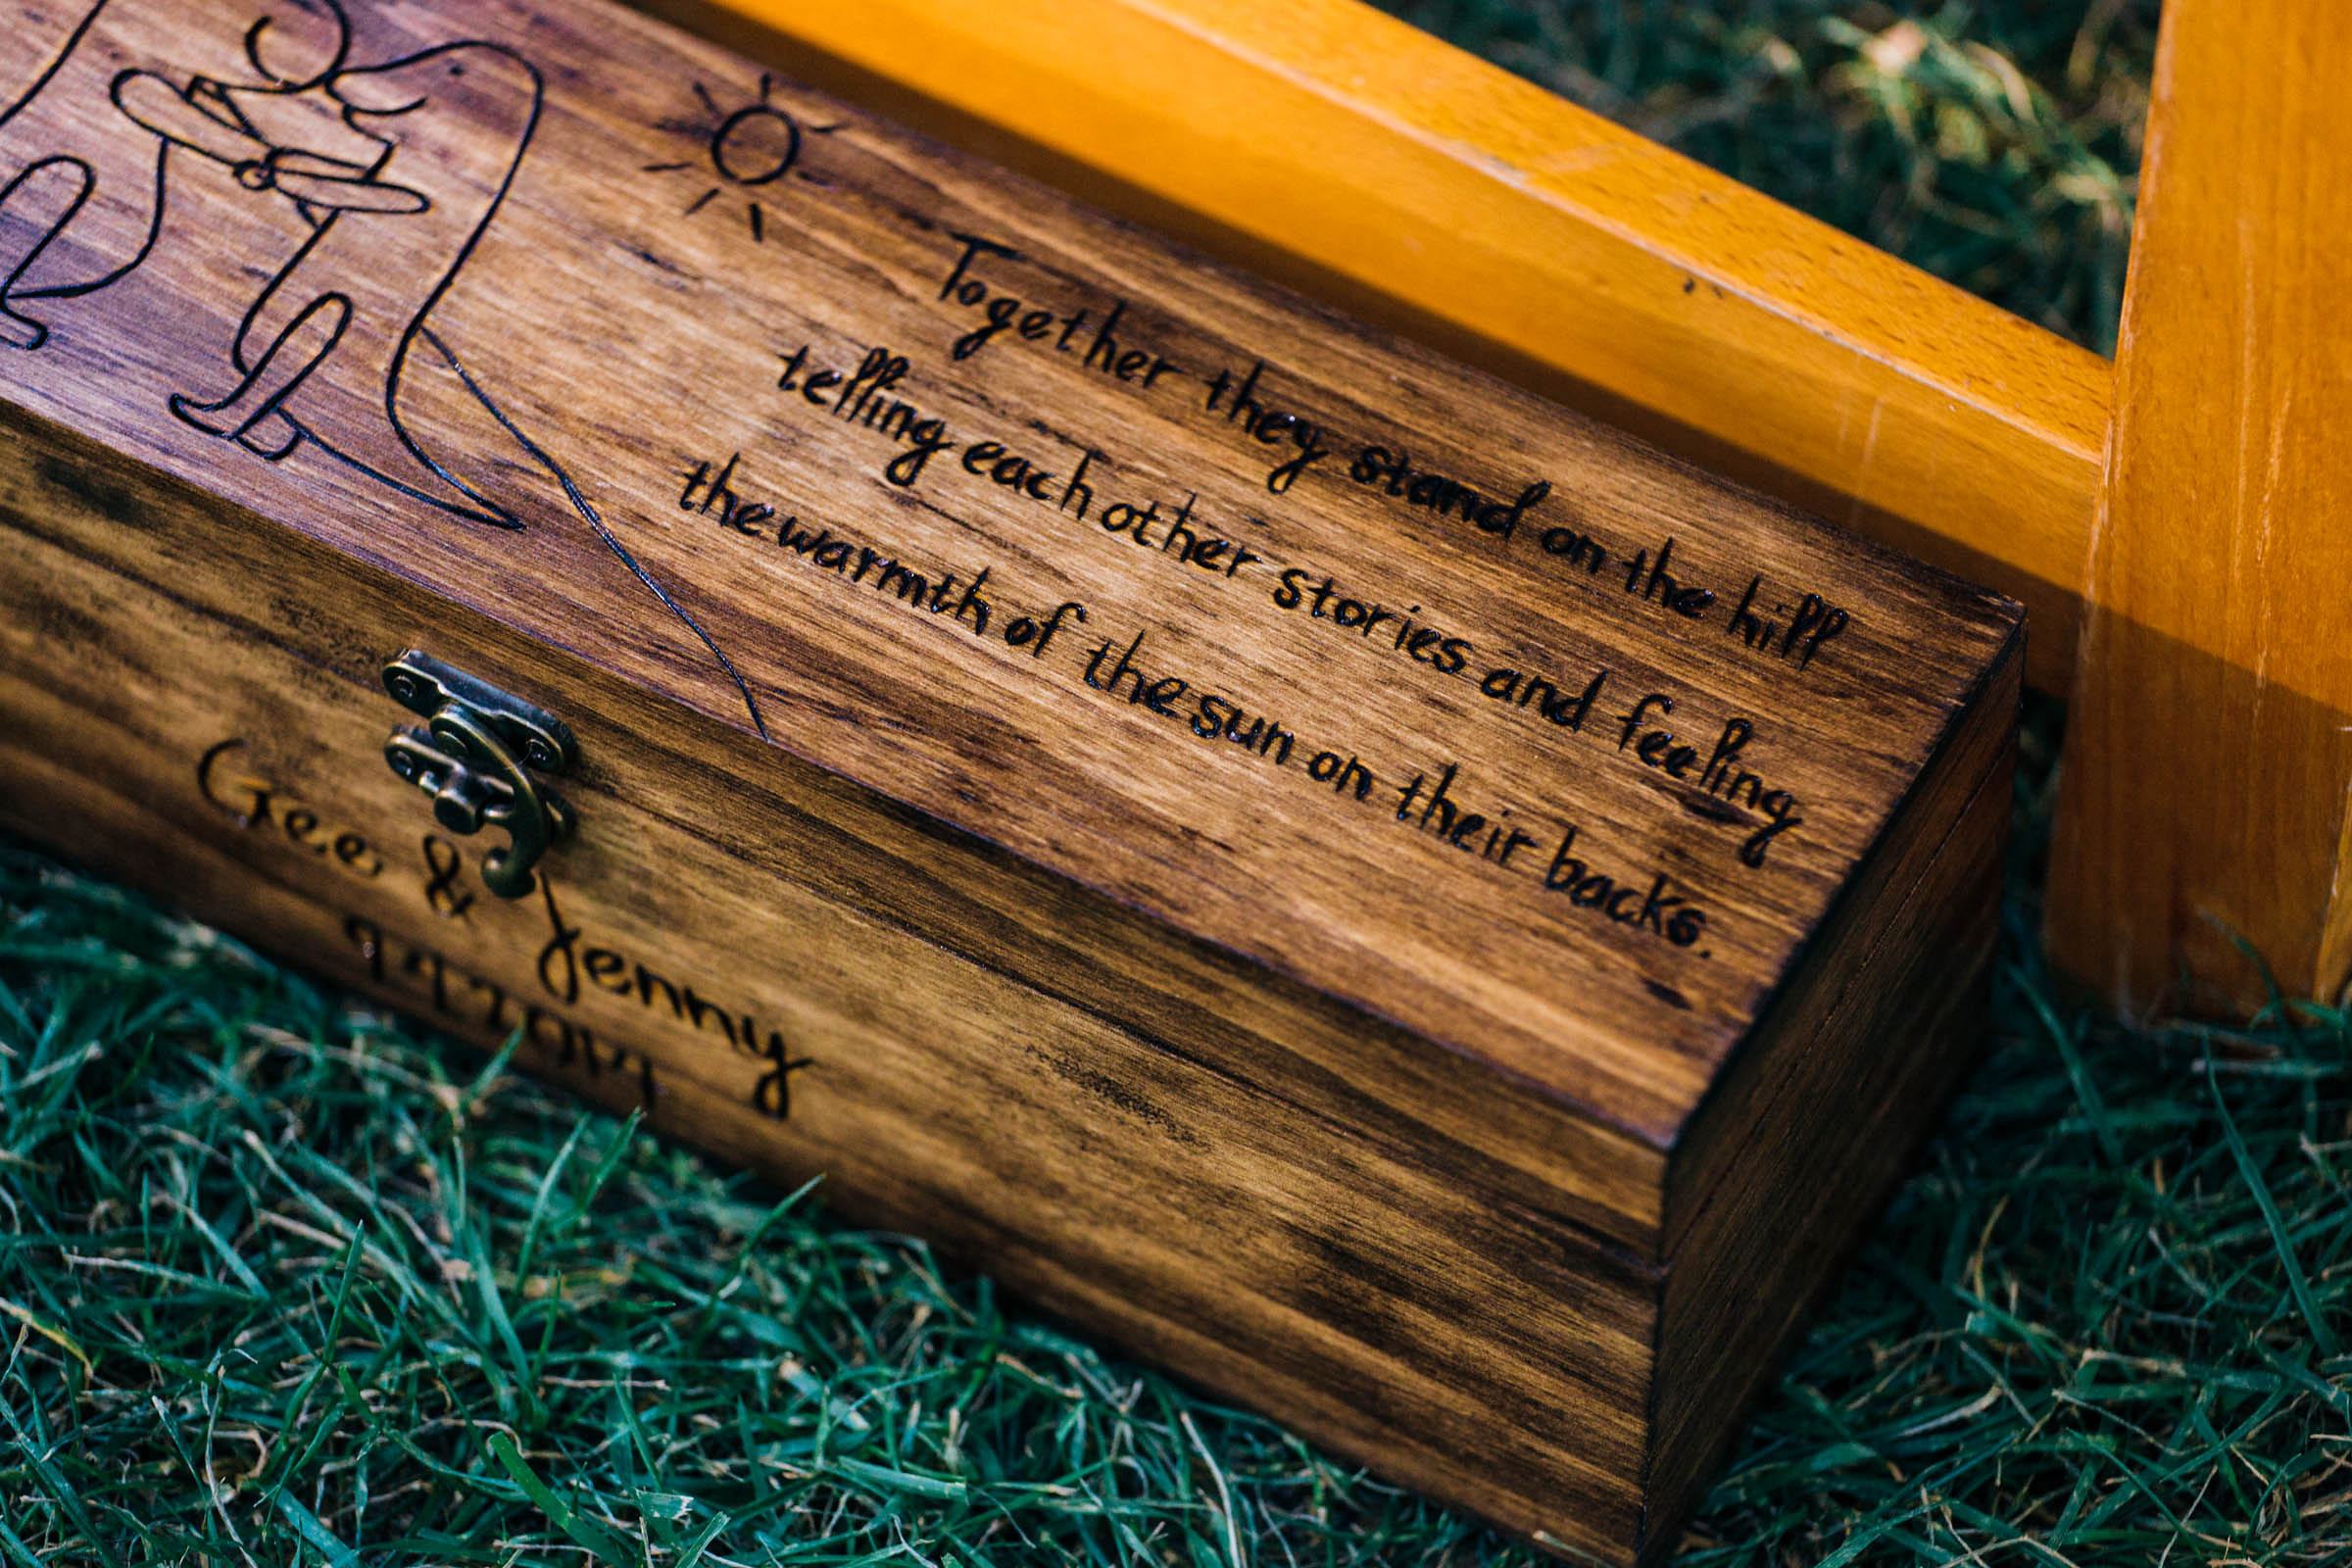 Together they stand on the hill
telling each other stories and feeling
the warmth of the sun on their backs.
Gee & Jenny